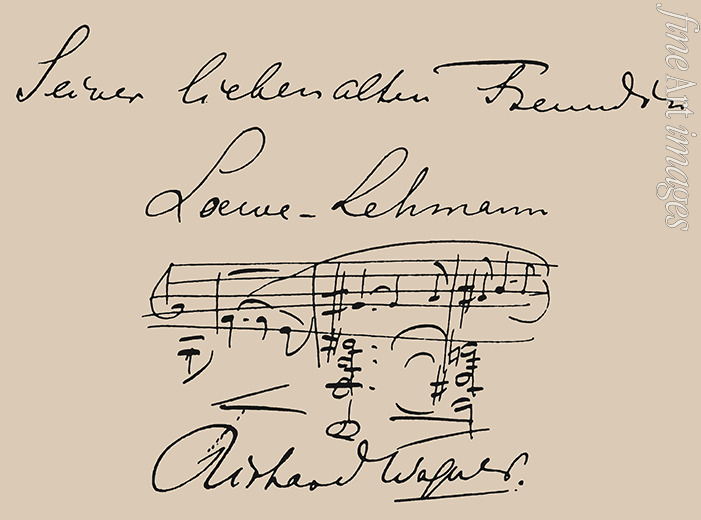 Seiner lieben alten Freundin
Loewe-Lehmann
Richard Wagner.
fine Art images